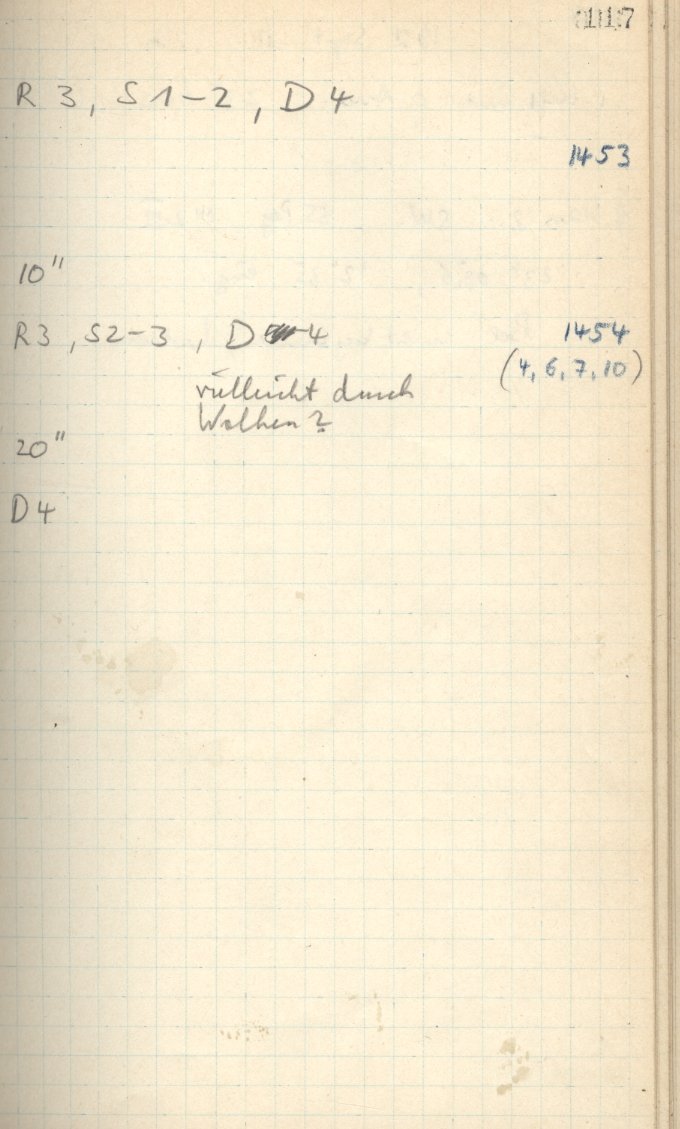 117
R 3, S 1-2, D 4
1453
10"
R3, S2-3, D 4 1454
(4, 6, 7, 10)
vielleicht durch
Wolken?
20"
D4